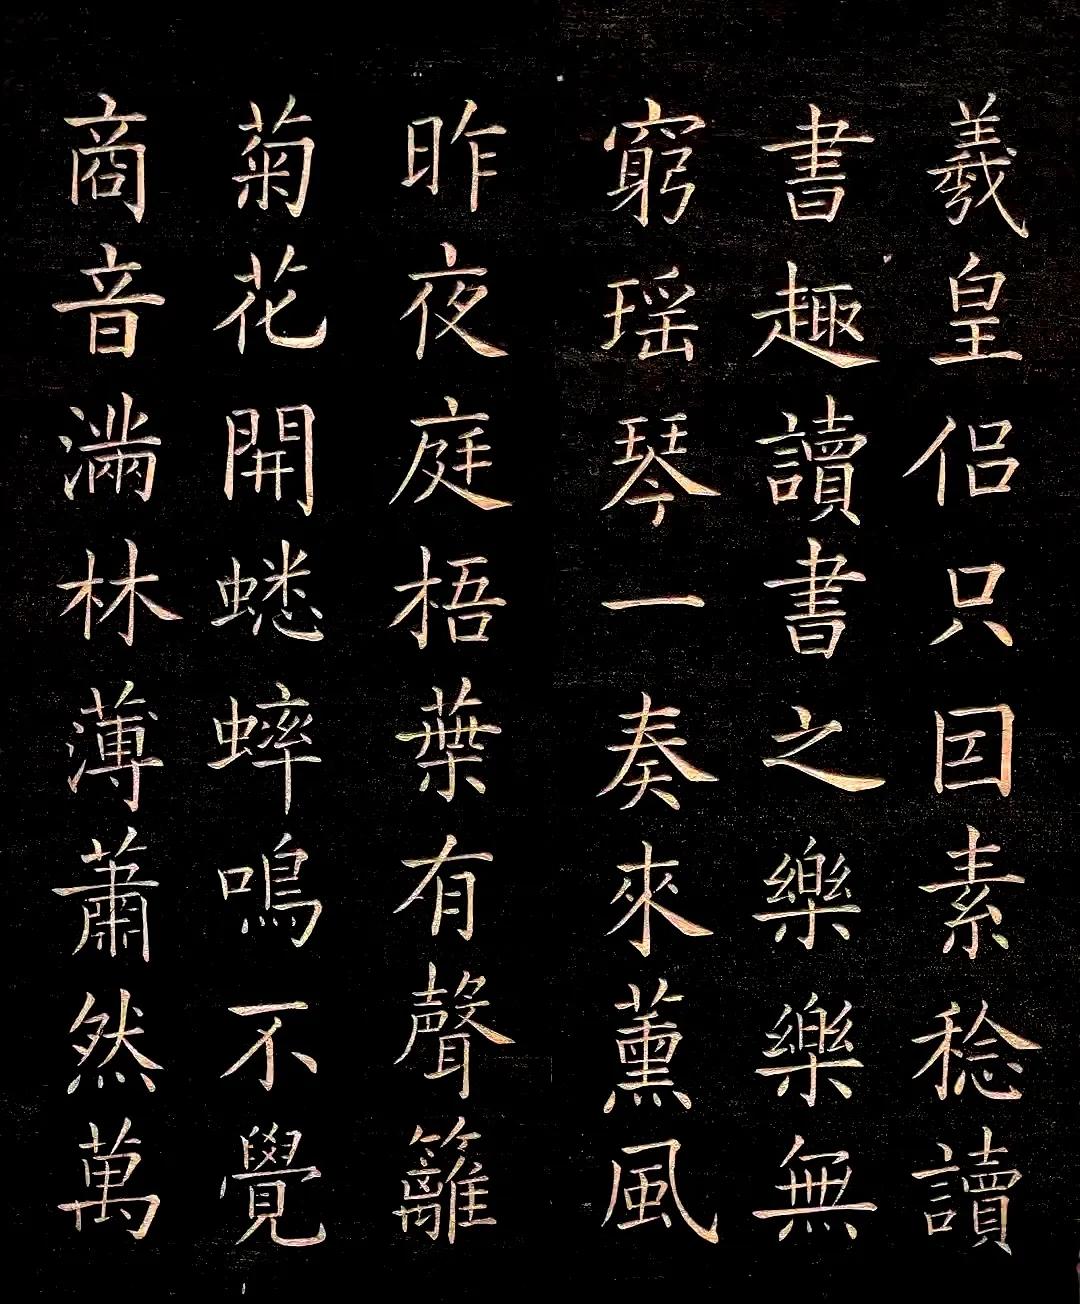 羲皇侶只囙素稔讀
書趣讀書之樂樂無
窮瑶琴一奏來薰風
昨夜庭梧葉有聲籬
菊花開蟋蟀鳴不覺
商音滿林薄蕭然萬